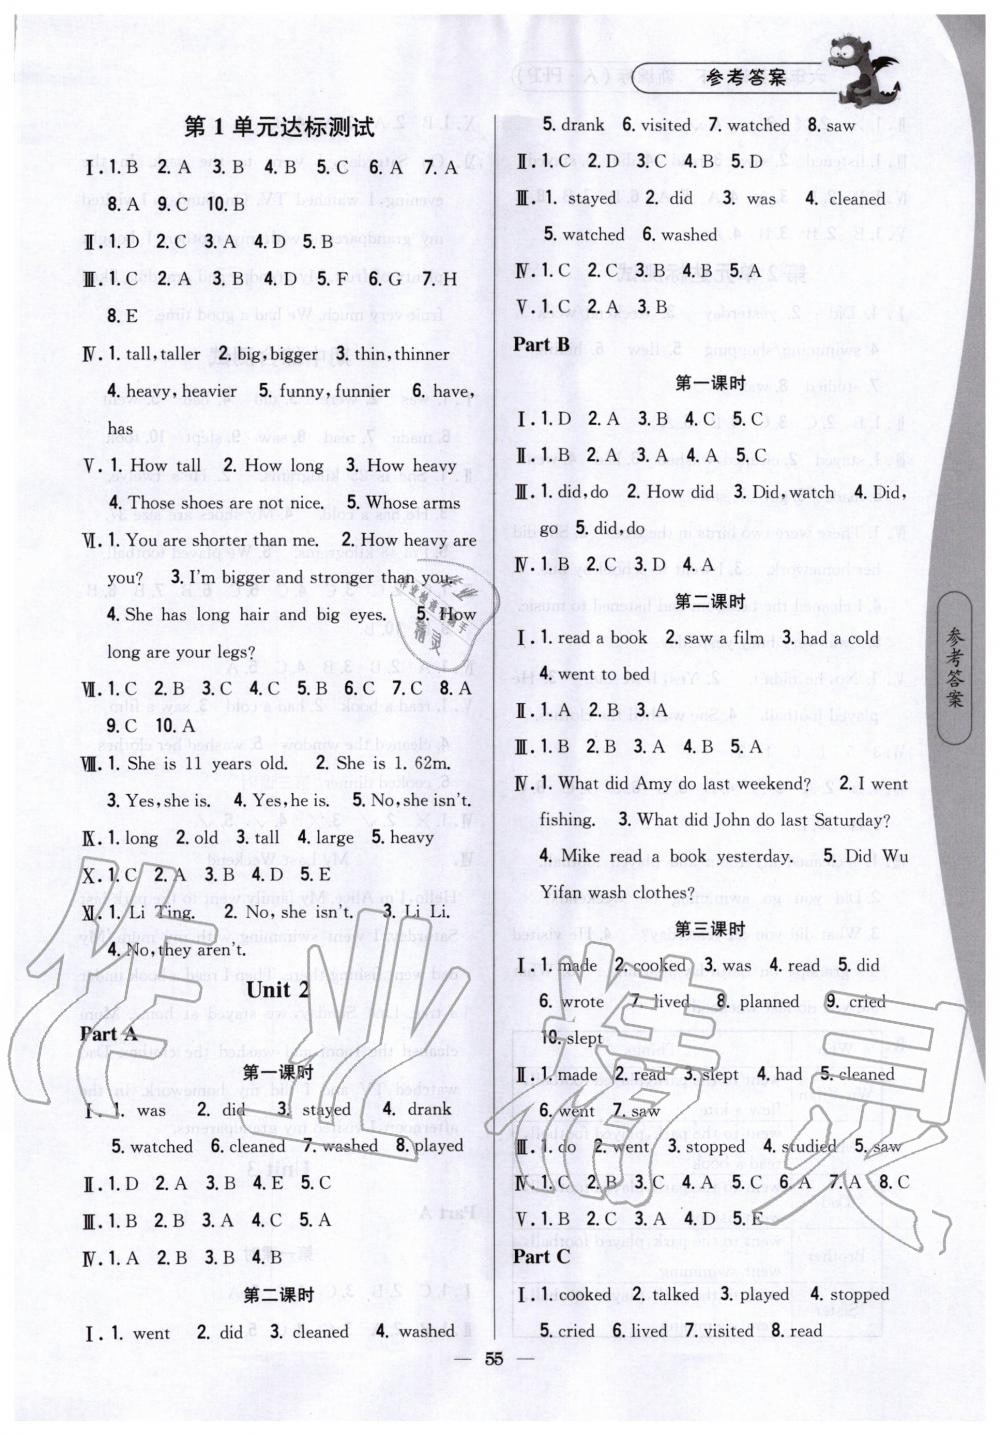 参考答案
第 1 单元达标测试
Ⅰ. 1. B 2. A 3. B 4. B 5. C 6. A 7. A
8. A 9. C 10. B
Ⅱ. 1. D 2. C 3. A 4. D 5. B
Ⅲ. 1. C 2. A 3. B 4. D 5. F 6. G 7. H
8. E
Ⅳ. 1. tall, taller 2. big, bigger 3. thin, thinner
4. heavy, heavier 5. funny, funnier 6. have,
has
Ⅴ. 1. How tall 2. How long 3. How heavy
4. Those shoes are not nice. 5. Whose arms
Ⅵ. 1. You are shorter than me. 2. How heavy are
you? 3. I'm bigger and stronger than you.
4. She has long hair and big eyes. 5. How
long are your legs?
Ⅶ. 1. C 2. B 3. C 4. C 5. B 6. C 7. C 8. A
9. C 10. A
Ⅷ. 1. She is 11 years old. 2. She is 1. 62m.
3. Yes, she is. 4. Yes, he is. 5. No, she isn't.
Ⅸ. 1. long 2. old 3. tall 4. large 5. heavy
Ⅹ. 1. C 2. A 3. B 4. D 5. E
Ⅺ. 1. Li Ting. 2. No, she isn't. 3. Li Li.
4. No, they aren't.
Unit 2
Part A
第一课时
Ⅰ. 1. was 2. did 3. stayed 4. drank
5. watched 6. cleaned 7. washed 8. played
Ⅱ. 1. D 2. A 3. B 4. E 5. C
Ⅲ. 1. B 2. B 3. A 4. C 5. A
Ⅳ. 1. A 2. B 3. B 4. B
第二课时
Ⅰ. 1. went 2. did 3. cleaned 4. washed
5. drank 6. visited 7. watched 8. saw
Ⅱ. 1. C 2. D 3. C 4. B 5. D
Ⅲ. 1. stayed 2. did 3. was 4. cleaned
5. watched 6. washed
Ⅳ. 1. C 2. C 3. B 4. B 5. A
Ⅴ. 1. C 2. A 3. B
Part B
第一课时
Ⅰ. 1. D 2. A 3. B 4. C 5. C
Ⅱ. 1. B 2. A 3. A 4. A 5. C
Ⅲ. 1. did, do 2. How did 3. Did, watch 4. Did,
go 5. did, do
Ⅳ. 1. B 2. C 3. D 4. A
第二课时
Ⅰ. 1. read a book 2. saw a film 3. had a cold
4. went to bed
Ⅱ. 1. A 2. B 3. A
Ⅲ. 1. B 2. B 3. A 4. B 5. A
Ⅳ. 1. What did Amy do last weekend? 2. I went
fishing. 3. What did John do last Saturday?
4. Mike read a book yesterday. 5. Did Wu
Yifan wash clothes?
第三课时
Ⅰ. 1. made 2. cooked 3. was 4. read 5. did
6. wrote 7. lived 8. planned 9. cried
10. slept
Ⅱ. 1. made 2. read 3. slept 4. had 5. cleaned
6. went 7. saw
Ⅲ. 1. do 2. went 3. stopped 4. studied 5. saw
Ⅳ. 1. C 2. B 3. C 4. A 5. C 6. A 7. A 8. C
Ⅴ. 1. B 2. C 3. A 4. D 5. E
Part C
Ⅰ. 1. cooked 2. talked 3. played 4. stopped
5. cried 6. lived 7. visited 8. read
参考答案
— 55 —
作业精灵